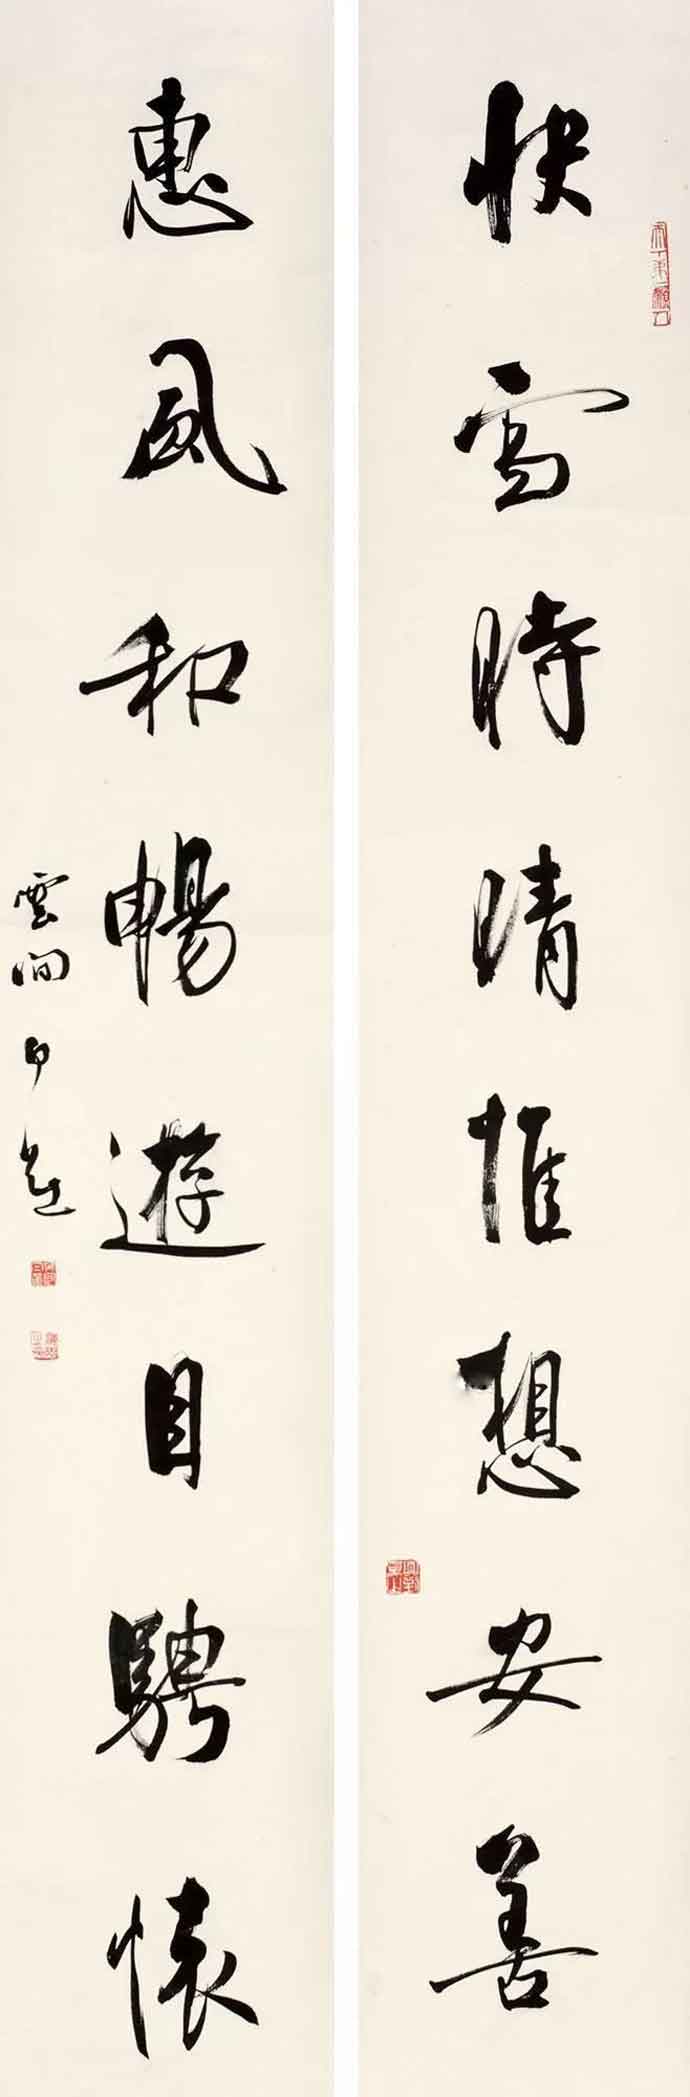 快雪時晴惟想安善
惠風和暢遊目騁懷
雲間白蕉